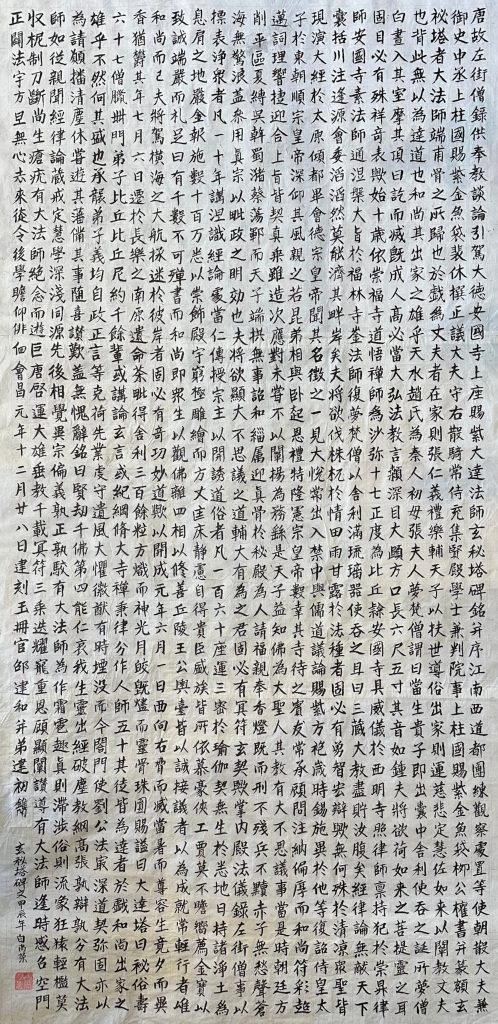 唐故左街僧錄供奉談論引駕大德安國寺上座賜紫大達法師玄秘塔碑銘并序江南西道都團練觀察處置等使朝散大夫兼
御史中丞上柱國賜紫金魚袋裴休撰正議大夫守右散騎常侍充集賢殿學士兼判院事上柱國賜紫金魚袋柳公權書并篆額玄
秘塔者大法師端甫骨之所歸也於戲為丈夫者在家則張仁義禮樂輔天子以扶世導俗出家則運慈悲定慧佐如來以闡教丈夫
也皆此無以為達道也和尚其出家之雄乎天水趙氏為秦人初母張夫人夢梵僧謂曰當生貴子即出囊中舍利使吞之誕所夢僧
白晝入其室摩其頂曰訖而滅既成人高必當大弘法教言顙深目大頤方口長六尺五寸其音如鐘夫將欲荷如來之菩提靈之耳
目必有殊祥奇表歟始十歲依崇福寺道悟禪師為沙弥十七正度為比丘隸安國寺具威儀於西明寺照律師稟持犯於崇昇律
師安國寺素法師通涅槃大旨於福林寺崟法師復夢梵僧以舍利滿琉璃器使吞之且曰三藏大教盡貯汝腹矣經律論無敵天下
囊括川注逢源會委滔滔然莫能濟其畔岸矣夫將欲伐株杌於情田雨甘露於法種者固必有勇智宏辯歟無何殊於清涼眾聖皆
現演大經於太原傾都畢會德宗皇帝聞其名徵之一見大悅常出入禁中與儒道議論賜紫方袍歲時錫施異於他等復詔侍皇太
子於東朝順宗皇帝深仰其風親之若昆弟相與臥起恩禮特隆憲宗皇帝數幸其寺待之賓友常承顧問注納偏厚而和尚符彩超
邁詞理響捷迎合上旨皆契真乘雖造次應對未嘗不以闡揚為務繇是天子益知佛為大聖人其教有大不思議事當是時朝廷方
削平區夏縛吳斡蜀潴蔡蕩鄆而天子端拱無事詔和緇屬迎真骨於秘殿為人請福親奉香燈既而刑不殘兵不黷赤子無愁聲蒼
海無驚浪蓋參用真宗以毗政之明効也夫將欲顯大不思議之道輔大有為之君固必有冥符玄契歟掌內殿法儀錄左街僧事以
標表淨眾者凡一十年講涅識經論處當仁傳授宗主以開誘道俗者凡一百六十座運三密於瑜伽契無生於悉地日持諸淨土為
息肩之地嚴金報施數十百万悉以崇飾殿宇窮極雕繪而方丈匡床靜慮自得貴臣盛族皆所依慕豪俠工賈莫不瞻嚮薦金寶以
致誠端嚴而礼足日有千數不可殫書而和尚即眾生以觀佛離四相以修善丘陵王公輿臺皆以誠接議者以為成就常輕行者唯
和尚而已夫將駕橫海之大航拯迷途於彼岸者固必有奇功妙道歟以開成元年六月一日西向右脅而滅當暑而尊容生竟夕而異
香猶鬱其年七月六日遷於長樂之南原遺命茶毗得舍利三百餘粒方熾而神光月皎既燼而靈骨珠圓賜謚曰大達塔曰秘俗壽
六十七僧臘卌門弟子比丘比丘尼約千餘輩或講論玄言或紀綱脩大寺禪秉律分作人師五十其徒皆為達者於戲和尚出家之
雄乎不然何其盛也承襲弟子義均自政正言等克荷先業虔守遺風大懼徽猷有時堙沒而今閤門使劉公法深道契弥固亦以
為請願播清塵休嘗遊其藩備其事隨喜讚歎蓋無愧辭銘曰賢劫千佛第四能仁哀我生靈出經破塵教網高張孰辯孰分有大法
師如從親聞經律論藏戒定慧學深淺同源先後相覺異宗偏義孰正孰駮有大法師為作霜雹趣真則滯涉俗則流象狂猿輕檻莫
收柅制刀斷尚生瘡疣有大法師絕念而遊巨唐啓運大雄垂教千載冥符三乘迭耀寵重恩顧顯闡讚導有大法師逢時感召空門
正闢法宇方旦無心去來徒令後學瞻仰徘佪會昌元年十二月廿八日建刻玉冊官邵建和并弟建初鐫
玄秘塔碑文甲辰年